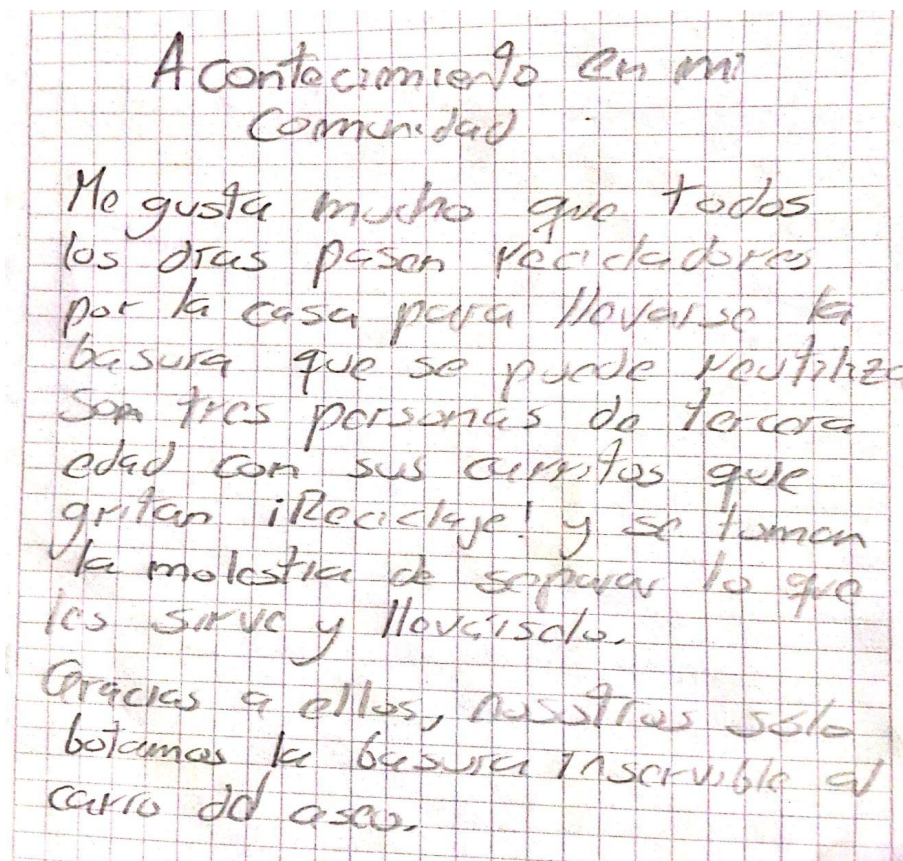 Acontecimiento en mi
Comunidad
Me gusta mucho que todos
los días pasen recicladores
por la casa para llevarse la
basura que se puede reutiliza
Son tres personas de tercera
edad con sus carritos que
gritan ¡Reciclaje! y se toman
la molestia de separar lo que
les sirve y llevárselo.
Gracias a ellos, nosotros sólo
botamos la basura inservible al
carro del aseo.